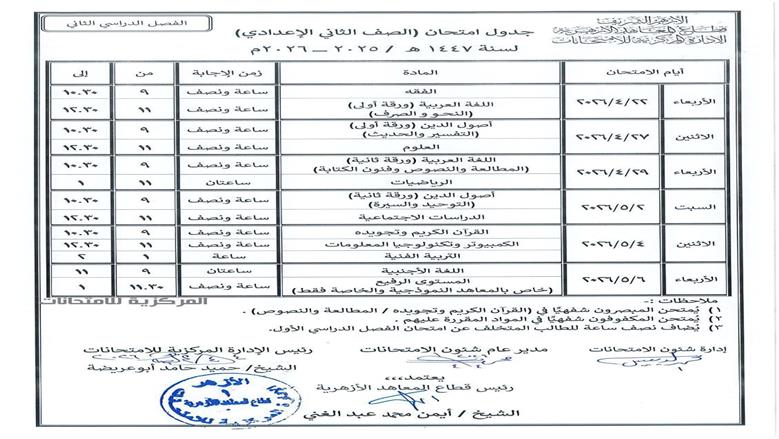 الأزهر الشريف
قطاع المعاهد الأزهرية
الإدارة المركزية للامتحانات
جدول امتحان (الصف الثاني الإعدادي)
لسنة ١٤٤٧ هـ / ٢٠٢٥ – ٢٠٢٦م
الفصل الدراسي الثاني
أيام الامتحان المادة زمن الإجابة من إلى
الأربعاء ٢٠٢٦/٤/٢٢ الفقه ساعة ونصف ٩ ١٠.٣٠
اللغة العربية (ورقة أولى) (النحو و الصرف) ساعة ونصف ١١ ١٢.٣٠
الاثنين ٢٠٢٦/٤/٢٧ أصول الدين (ورقة أولى) (التفسير والحديث) ساعة ونصف ٩ ١٠.٣٠
العلوم ساعة ونصف ١١ ١٢.٣٠
الأربعاء ٢٠٢٦/٤/٢٩ اللغة العربية (ورقة ثانية) (المطالعة والنصوص وفنون الكتابة) ساعة ونصف ٩ ١٠.٣٠
الرياضيات ساعتان ١١ ١
السبت ٢٠٢٦/٥/٢ أصول الدين (ورقة ثانية) (التوحيد والسيرة) ساعة ونصف ٩ ١٠.٣٠
الدراسات الاجتماعية ساعة ونصف ١١ ١٢.٣٠
الاثنين ٢٠٢٦/٥/٤ القرآن الكريم وتجويده ساعة ونصف ٩ ١٠.٣٠
الكمبيوتر وتكنولوجيا المعلومات ساعة ونصف ١١ ١٢.٣٠
التربية الفنية ساعة ١ ٢
الأربعاء ٢٠٢٦/٥/٦ اللغة الأجنبية ساعتان ٩ ١١
المستوى الرفيع (خاص بالمعاهد النموذجية والخاصة فقط) ساعة ونصف ١١.٣٠ ١
المركزية للامتحانات
ملاحظات :-
١) يُمتحن المبصرون شفهيًا في (القرآن الكريم وتجويده / المطالعة والنصوص) .
٢) يُمتحن المكفوفون شفهيًا في المواد المقررة عليهم .
٣) يُضاف نصف ساعة للطالب المتخلف عن امتحان الفصل الدراسي الأول.
إدارة شئون الامتحانات مدير عام شئون الامتحانات رئيس الإدارة المركزية للامتحانات
الشيخ/ حميد حامد أبوعريضة
يعتمد،،،
رئيس قطاع المعاهد الأزهرية
الشيخ / أيمن محمد عبد الغني
الأزهر
١
قطاع المعاهد الأزهرية